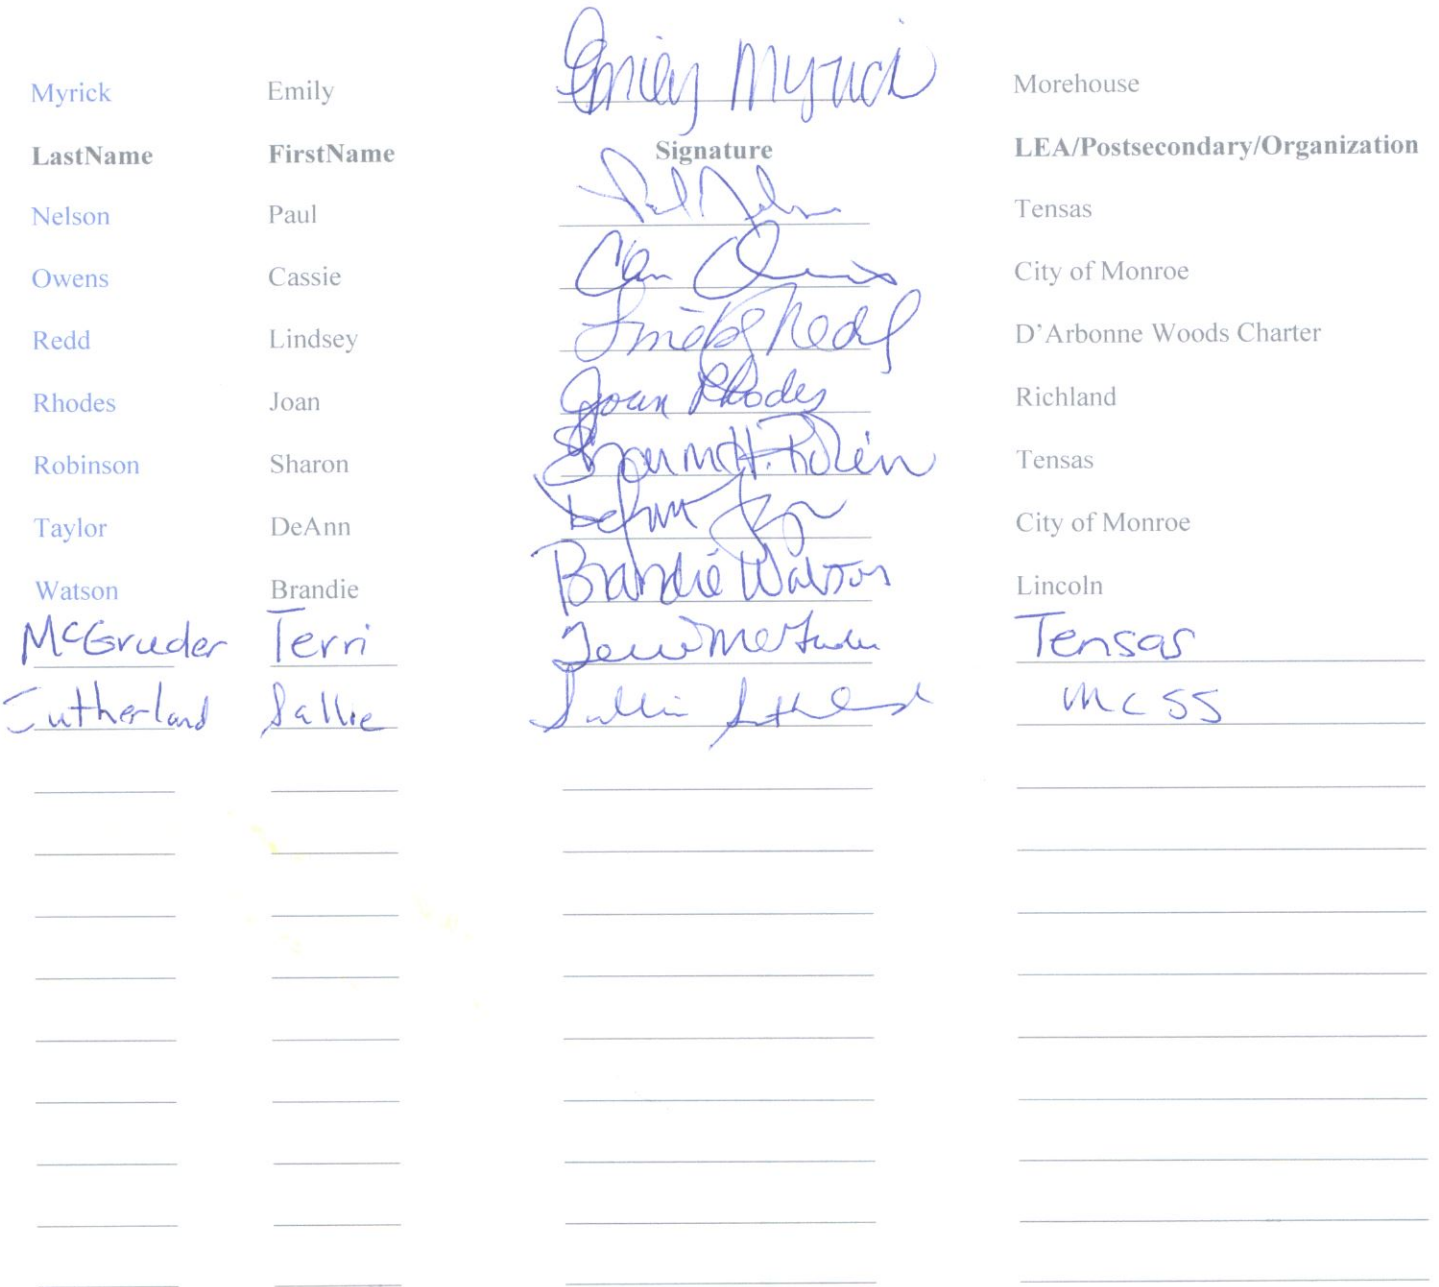 Myrick Emily Emily Myrick Morehouse
LastName FirstName Signature LEA/Postsecondary/Organization
Nelson Paul Paul Nelson Tensas
Owens Cassie City of Monroe
Redd Lindsey Lindsey Redd D'Arbonne Woods Charter
Rhodes Joan Joan Rhodes Richland
Robinson Sharon Tensas
Taylor DeAnn City of Monroe
Watson Brandie Brandie Watson Lincoln
McGruder Terri Terri McGruder Tensas
Sutherland Sallie Sallie Sutherland MCSS